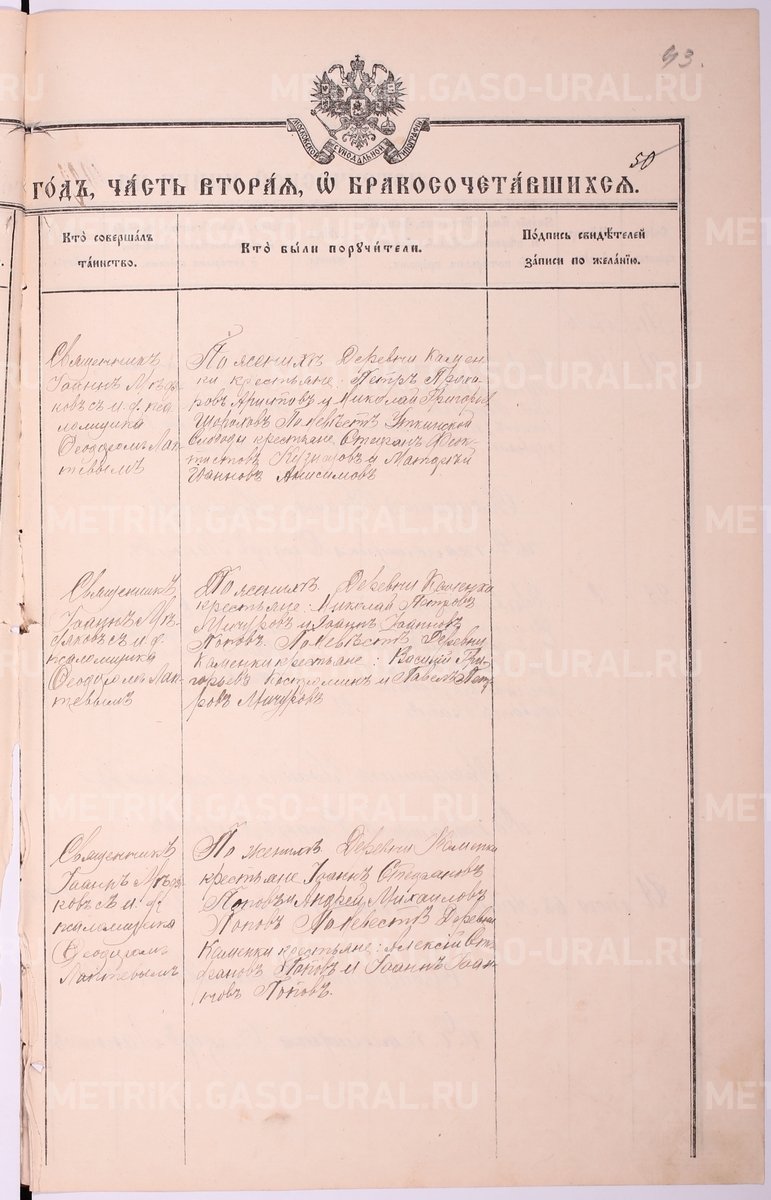 93.
METRIKI.GASO-URAL.RU
МОСКОВСКОЙ СУНОДАЛЬНОЙ ТИПОГРАФІИ
50
ГО́ДЪ, ЧА́СТЬ ВТОРА́Я, Ѡ БРАКОСОЧЕТА́ВШИХСЯ.
Кто̀ совершалъ
та́инство.
Кто̀ бы́ли поручи́тели.
По́дпись свидѣ́телей
за́писи по жела́нію.
Священникъ
Іоаннъ
ковъ съ и. д. пса
ломщика
Ѳеодоромъ Лак-
тевымъ
По женихѣ Деревни Камен
ки крестьяне: Петръ
ровъ Аристовъ и Николай Григорьев
По невѣстѣ Уткинской
Слободы крестьяне Стефанъ Ѳеок-
тистовъ Кузнецовъ и Матвѣй
Ивановъ Анисимовъ
Священникъ
Іоаннъ
ковъ съ и. д.
псаломщика
Ѳеодоромъ Лак-
тевымъ
По женихѣ Деревни Каменка
крестьяне: Николай Петровъ
Мичуровъ и Іоаннъ Іоанновъ
Поповъ. По невѣстѣ Деревни
Каменки крестьяне: Василій Гри-
горьевъ Костроминъ и Павелъ Пет
ровъ Мичуровъ
Священникъ
Іоаннъ
ковъ съ и. д.
псаломщика
Ѳеодоромъ
Лактевымъ
По женихѣ Деревни Каменки
крестьяне Іоаннъ Стефановъ
Поповъ и Андрей Михаиловъ
Поповъ По невестѣ Деревни
Каменки крестьяне: Алексій Сте
фановъ Поповъ и Іоаннъ Іоан
новъ Поповъ.